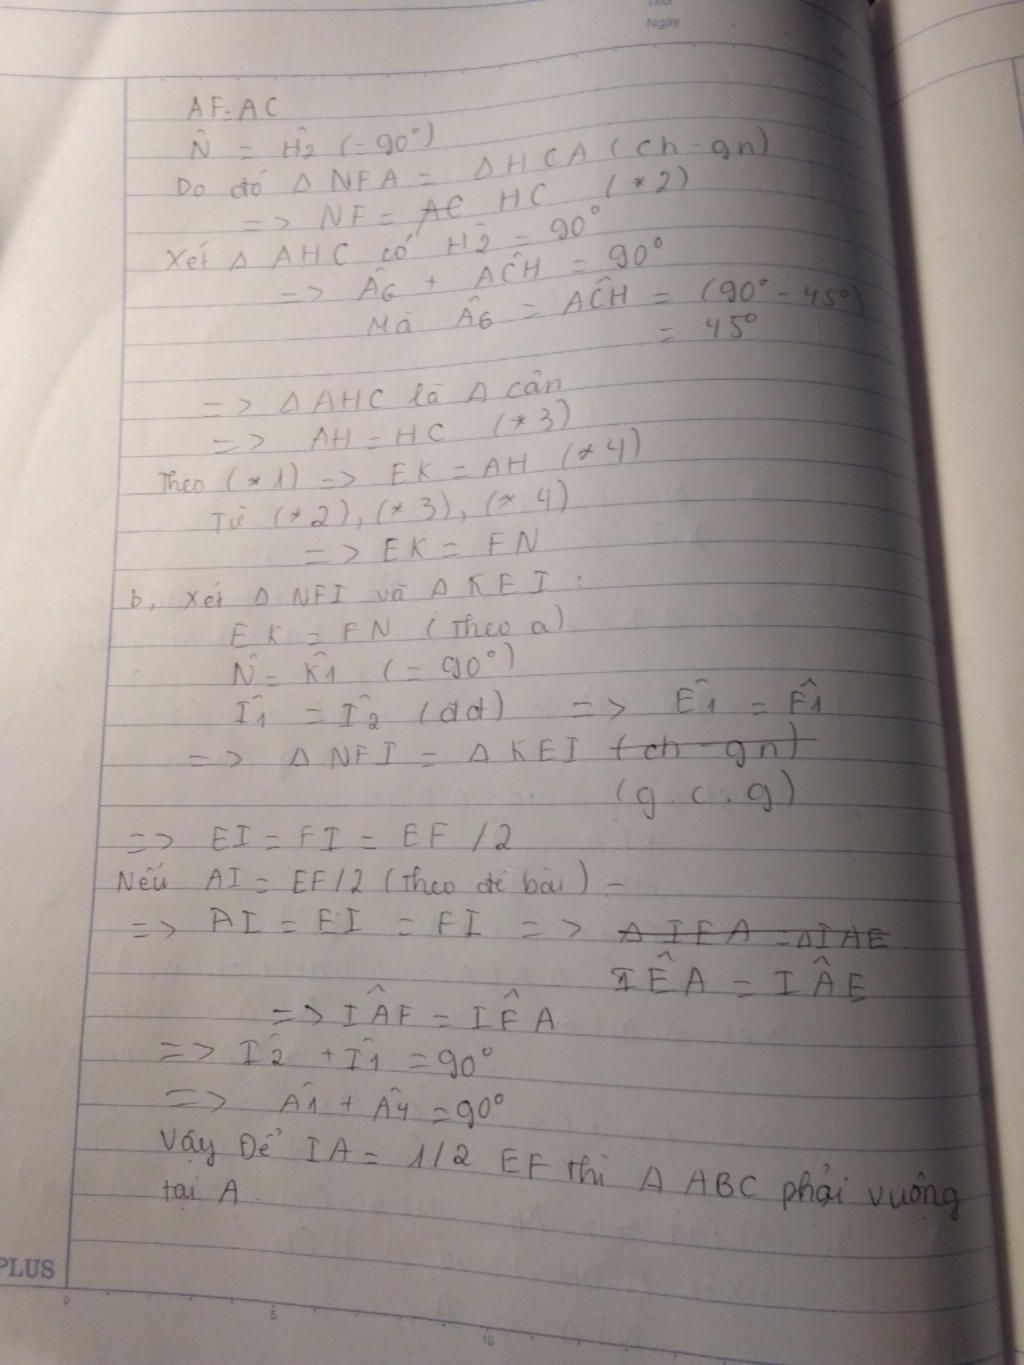 Thứ
Ngày
AF = AC
N̂ = Ĥ2 (= 90°)
Do đó Δ NFA = Δ HCA (ch - gn)
=> NF = AC HC (*2)
Xét Δ AHC có Ĥ2 = 90°
=> Â6 + AĈH = 90°
Mà Â6 = AĈH = (90° - 45°)
= 45°
=> Δ AHC là Δ cân
=> AH = HC (*3)
Theo (*1) => EK = AH (*4)
Từ (*2), (*3), (*4)
=> EK = FN
b, Xét Δ NFI và Δ KEI :
EK = FN (Theo a)
N̂ = K̂1 (= 90°)
Î1 = Î2 (đđ) => Ê1 = F̂1
=> Δ NFI = Δ KEI (ch - gn)
(g.c.g)
=> EI = FI = EF /2
Nếu AI = EF/2 (Theo đề bài) -
=> AI = EI = FI => Δ IEA = Δ IAE
IÊA = IÂE
=> IÂF = IF̂A
=> Î2 + Î1 = 90°
=> Â1 + Â4 = 90°
Vậy Để IA = 1/2 EF thì Δ ABC phải vuông
tại A.
PLUS
0 5 10